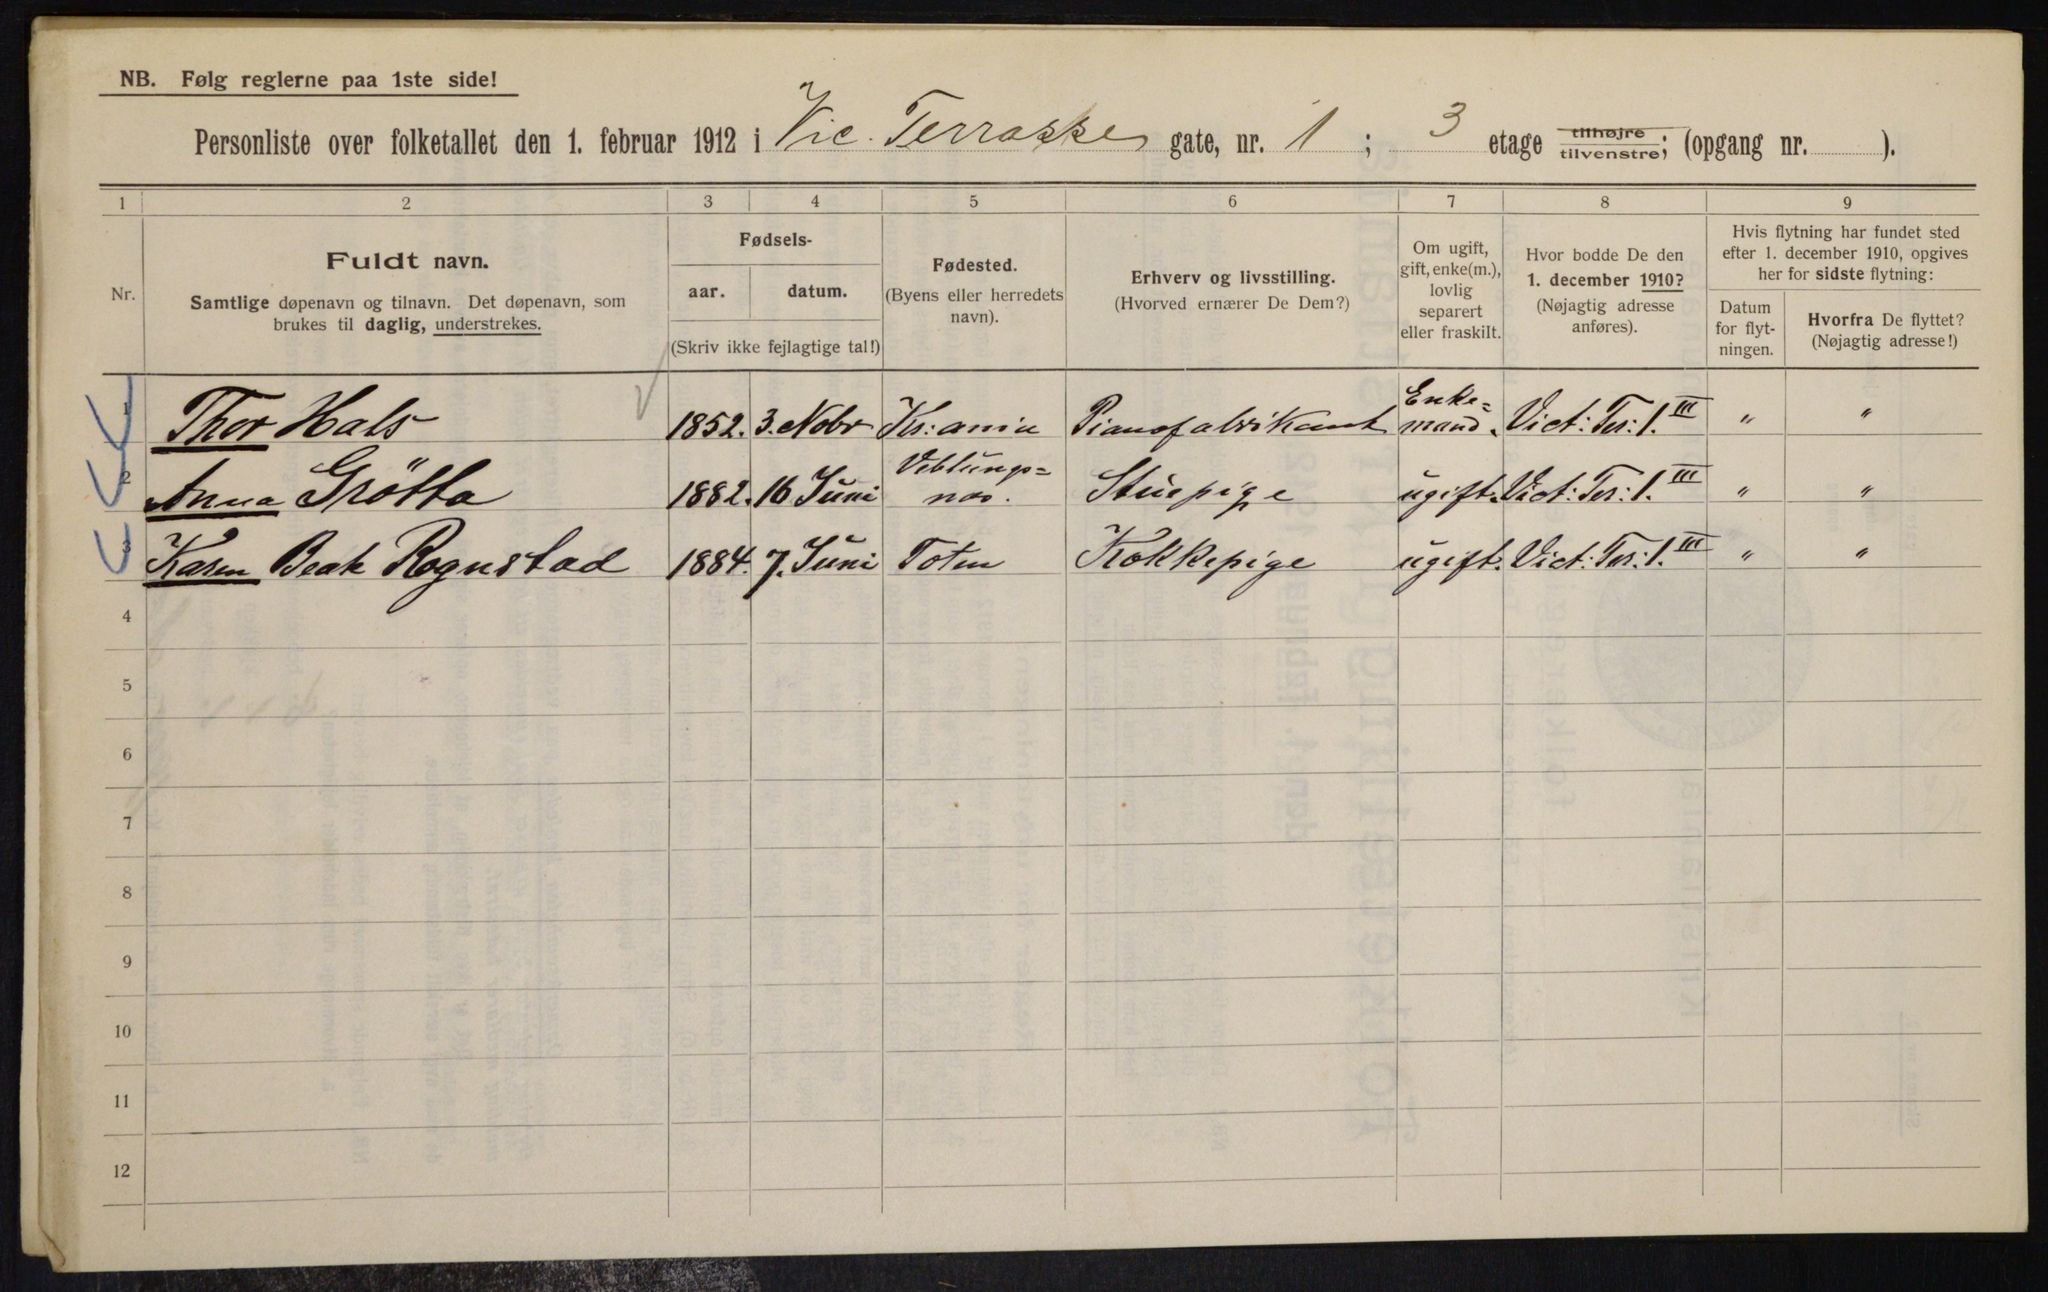 NB. Følg reglerne paa 1ste side!
Personliste over folketallet den 1. februar 1912 i Vic. Terrasse gate, nr. 1 ; 3 etage tilhøjre tilvenstre; (opgang nr. ).
1 2 3 4 5 6 7 8 9
Nr.
Fuldt navn.
Samtlige døpenavn og tilnavn. Det døpenavn, som
brukes til daglig, understrekes.
Fødsels-
aar. datum.
(Skriv ikke fejlagtige tal!)
Fødested.
(Byens eller herredets
navn).
Erhverv og livsstilling.
(Hvorved ernærer De Dem?)
Om ugift,
gift, enke(m.),
lovlig
separert
eller fraskilt.
Hvor bodde De den
1. december 1910?
(Nøjagtig adresse
anføres).
Hvis flytning har fundet sted
efter 1. december 1910, opgives
her for sidste flytning:
Datum
for flyt-
ningen.
Hvorfra De flyttet?
(Nøjagtig adresse!)
1 Thor Hals 1852. 3. Nobr Kr:ania Pianofabrikant Enke=
mand. Vict: Ter: 1. III " "
2 Anna Grötta 1882. 16 Juni Veblungs=
nes. Stuepige ugift. Vict: Ter: 1. III " "
3 Karen Beate Rognstad 1884. 7. Juni Toten Kokkepige ugift. Vict: Ter: 1. III " "
4
5
6
7
8
9
10
11
12